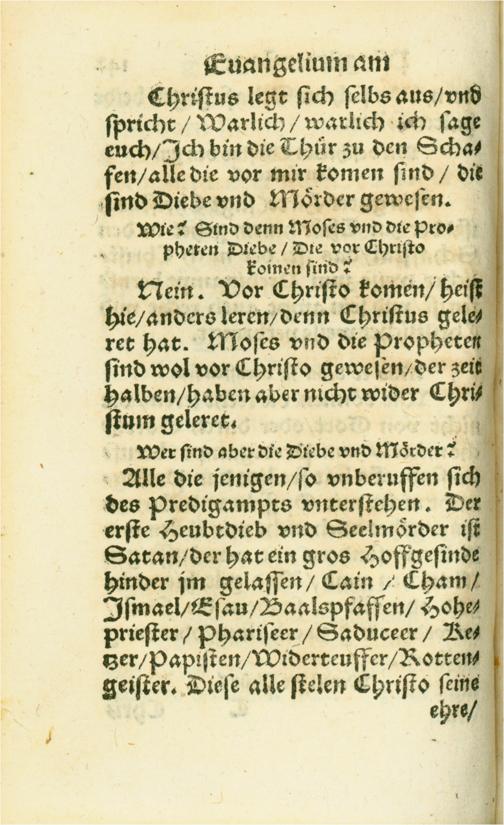 Euangelium am
Christus legt sich selbs aus/vnd
spricht / Warlich / warlich ich sage
euch/Ich bin die Thür zu den Scha⸗
fen/alle die vor mir komen sind / die
sind Diebe vnd Mörder gewesen.
Wie? Sind denn Moses vnd die Pro⸗
pheten Diebe / Die vor Christo
komen sind?
Nein. Vor Christo komen/heist
hie/anders leren/denn Christus gele⸗
ret hat. Moses vnd die Propheten
sind wol vor Christo gewesen/der zeit
halben/haben aber nicht wider Chri⸗
stum geleret.
Wer sind aber die Diebe vnd Mörder?
Alle die jenigen/so vnberuffen sich
des Predigampts vnterstehen. Der
erste Heubtdieb vnd Seelmörder ist
Satan/der hat ein gros Hoffgesinde
hinder jm gelassen/ Cain / Cham/
Ismael/Esau/Baalspfaffen/ Hohe⸗
priester / Phariseer / Saduceer / Ke⸗
tzer/Papisten/Widerteuffer/Rotten⸗
geister. Diese alle stelen Christo seine
ehre/